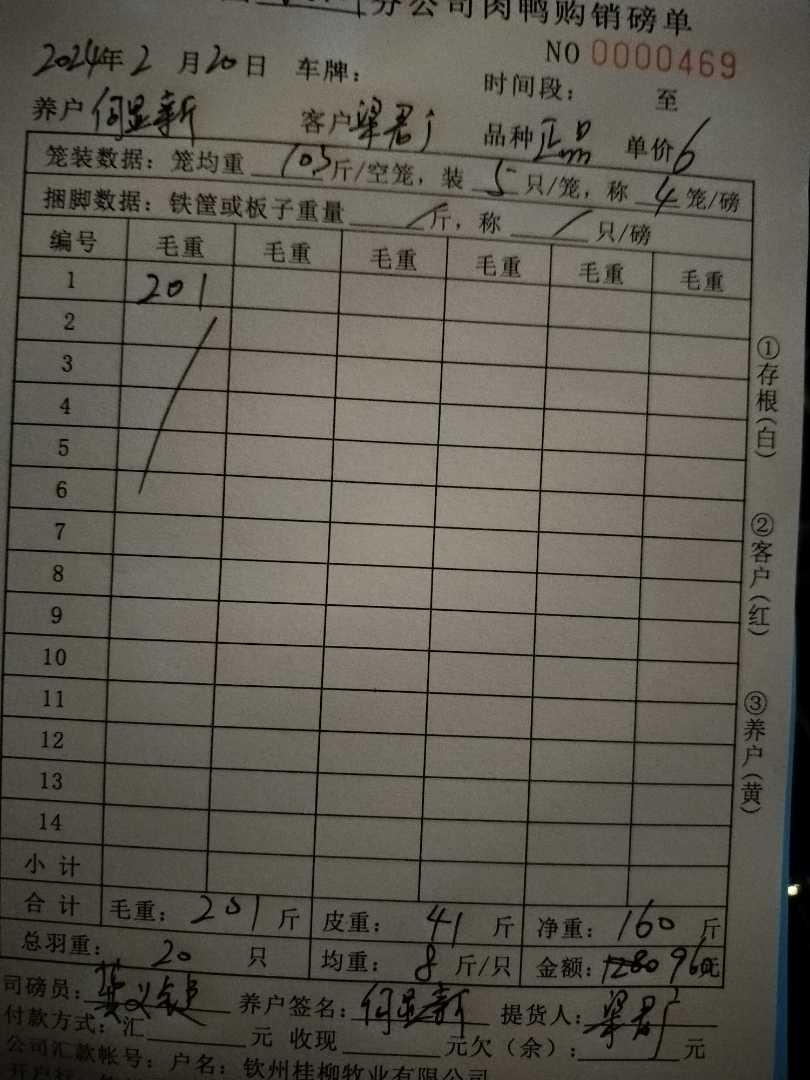 分公司肉鸭购销磅单
NO 0000469
2024年2月20日 车牌： 时间段： 至
养户 何显新 客户 梁君广 品种 正品 单价 6
笼装数据：笼均重 103 斤/空笼，装 5 只/笼，称 4 笼/磅
捆脚数据：铁筐或板子重量 / 斤，称 / 只/磅
编号 毛重 毛重 毛重 毛重 毛重 毛重
1 201
2
3
4
5
6
7
8
9
10
11
12
13
14
小计
合计 毛重：201 斤 皮重：41 斤 净重：160 斤
总羽重：20 只 均重：8 斤/只 金额：1280 960元
司磅员： 养户签名：何显新 提货人：梁君广
付款方式：汇 元 收现 元欠（余）： 元
公司汇款帐号：户名：钦州桂柳牧业有限公司
①存根（白）
②客户（红）
③养户（黄）